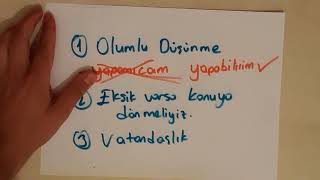 1 Olumlu Düşünme
yapamıcam yapabilirim ✓
2 Eksik varsa konuya
dönmeliyiz.
3 Vatandaşlık